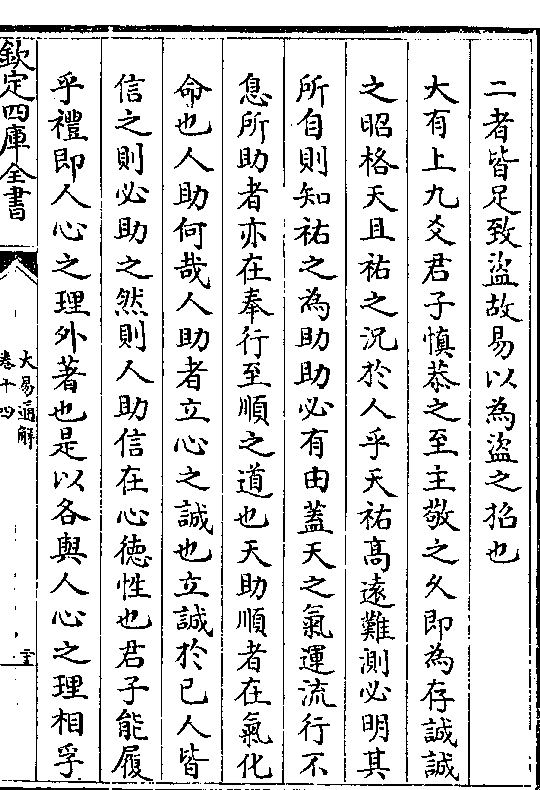 二者皆足致盜故易以為盜之招也
大有上九爻君子慎恭之至主敬之久即為存誠誠
之昭格天且祐之況於人乎天祐高遠難測必明其
所自則知祐之為助助必有由蓋天之氣運流行不
息所助者亦在奉行至順之道也天助順者在氣化
命也人助何哉人助者立心之誠也立誠於已人皆
信之則必助之然則人助信在心德性也君子能履
乎禮即人心之理外著也是以各與人心之理相孚
欽定四庫全書
大易通解
卷十四